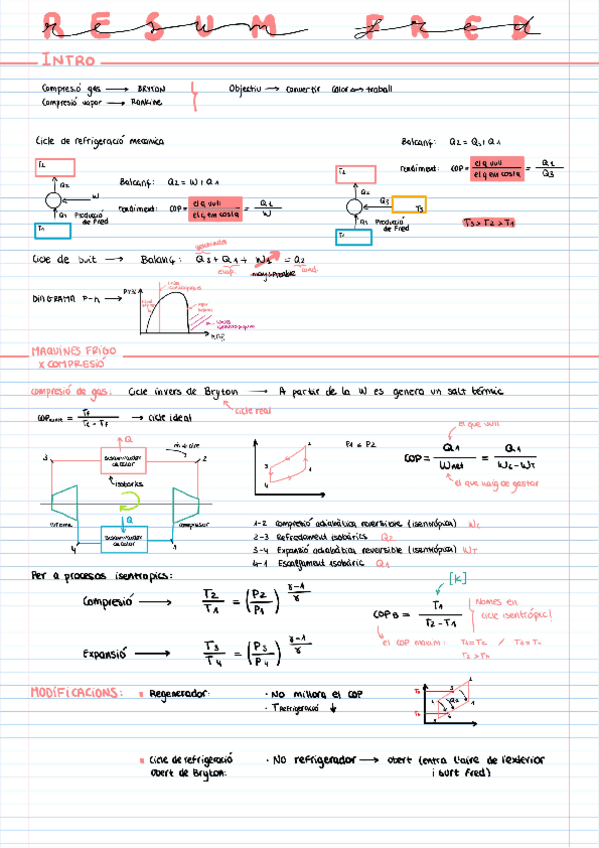 RESUM FRED
INTRO
Compresió gas → BRYTON
Compresió vapor → Rankine
Objectiu → convertir calor ↔ treball
Cicle de refrigeració mecanica
T2
Q2
W
Q1 Producció de Fred
T1
Balanç: Q2 = W + Q1
rendiment: COP = el q vull / el q em costa = Q1 / W
T2
Q2
Q3
T3
Q1 Producció de Fred
T1
Balanç: Q2 = Q3 + Q1
rendiment: COP = el q vull / el q em costa = Q1 / Q3
T3 > T2 > T1
Cicle de buit → Balanç: Q3 + Q1 + W1 = Q2
generador
evap.
menyspreable
cond.
DIAGRAMA P-h →
MAQUINES FRIGO
X COMPRESIÓ
compresió de gas: Cicle invers de Bryton → A partir de la W es genera un salt tèrmic
cicle real
= TF / TC - TF → cicle ideal
Q
3
2
isobarks
turbina
compresor
Q
4
1
P1 ≤ P2
el que vull
COP = Q1 / Wnet = Q1 / WC - WT
el que haig de gastar
1-2 compresió adiabàtica reversible (isentrópica) WC
2-3 Refredament isobàric Q2
3-4 Expansió adiabàtica reversible (isentrópica) WT
4-1 Escalfament isobàric Q1
Per a procesos isentropics:
Compresió → T2 / T1 = (P2 / P1) γ-1 / γ
Expansió → T3 / T4 = (P3 / P4) γ-1 / γ
[K]
COP B = T1 / T2 - T1
Nomes en cicle isentrópic!
el COP maxim:
MODIFICACIONS:
Regenerador:
· No millora el COP
· T refrigeració ↓
Cicle de refrigeració obert de Bryton:
· No refrigerador → obert (entra l'aire de l'exterior
i surt Fred)